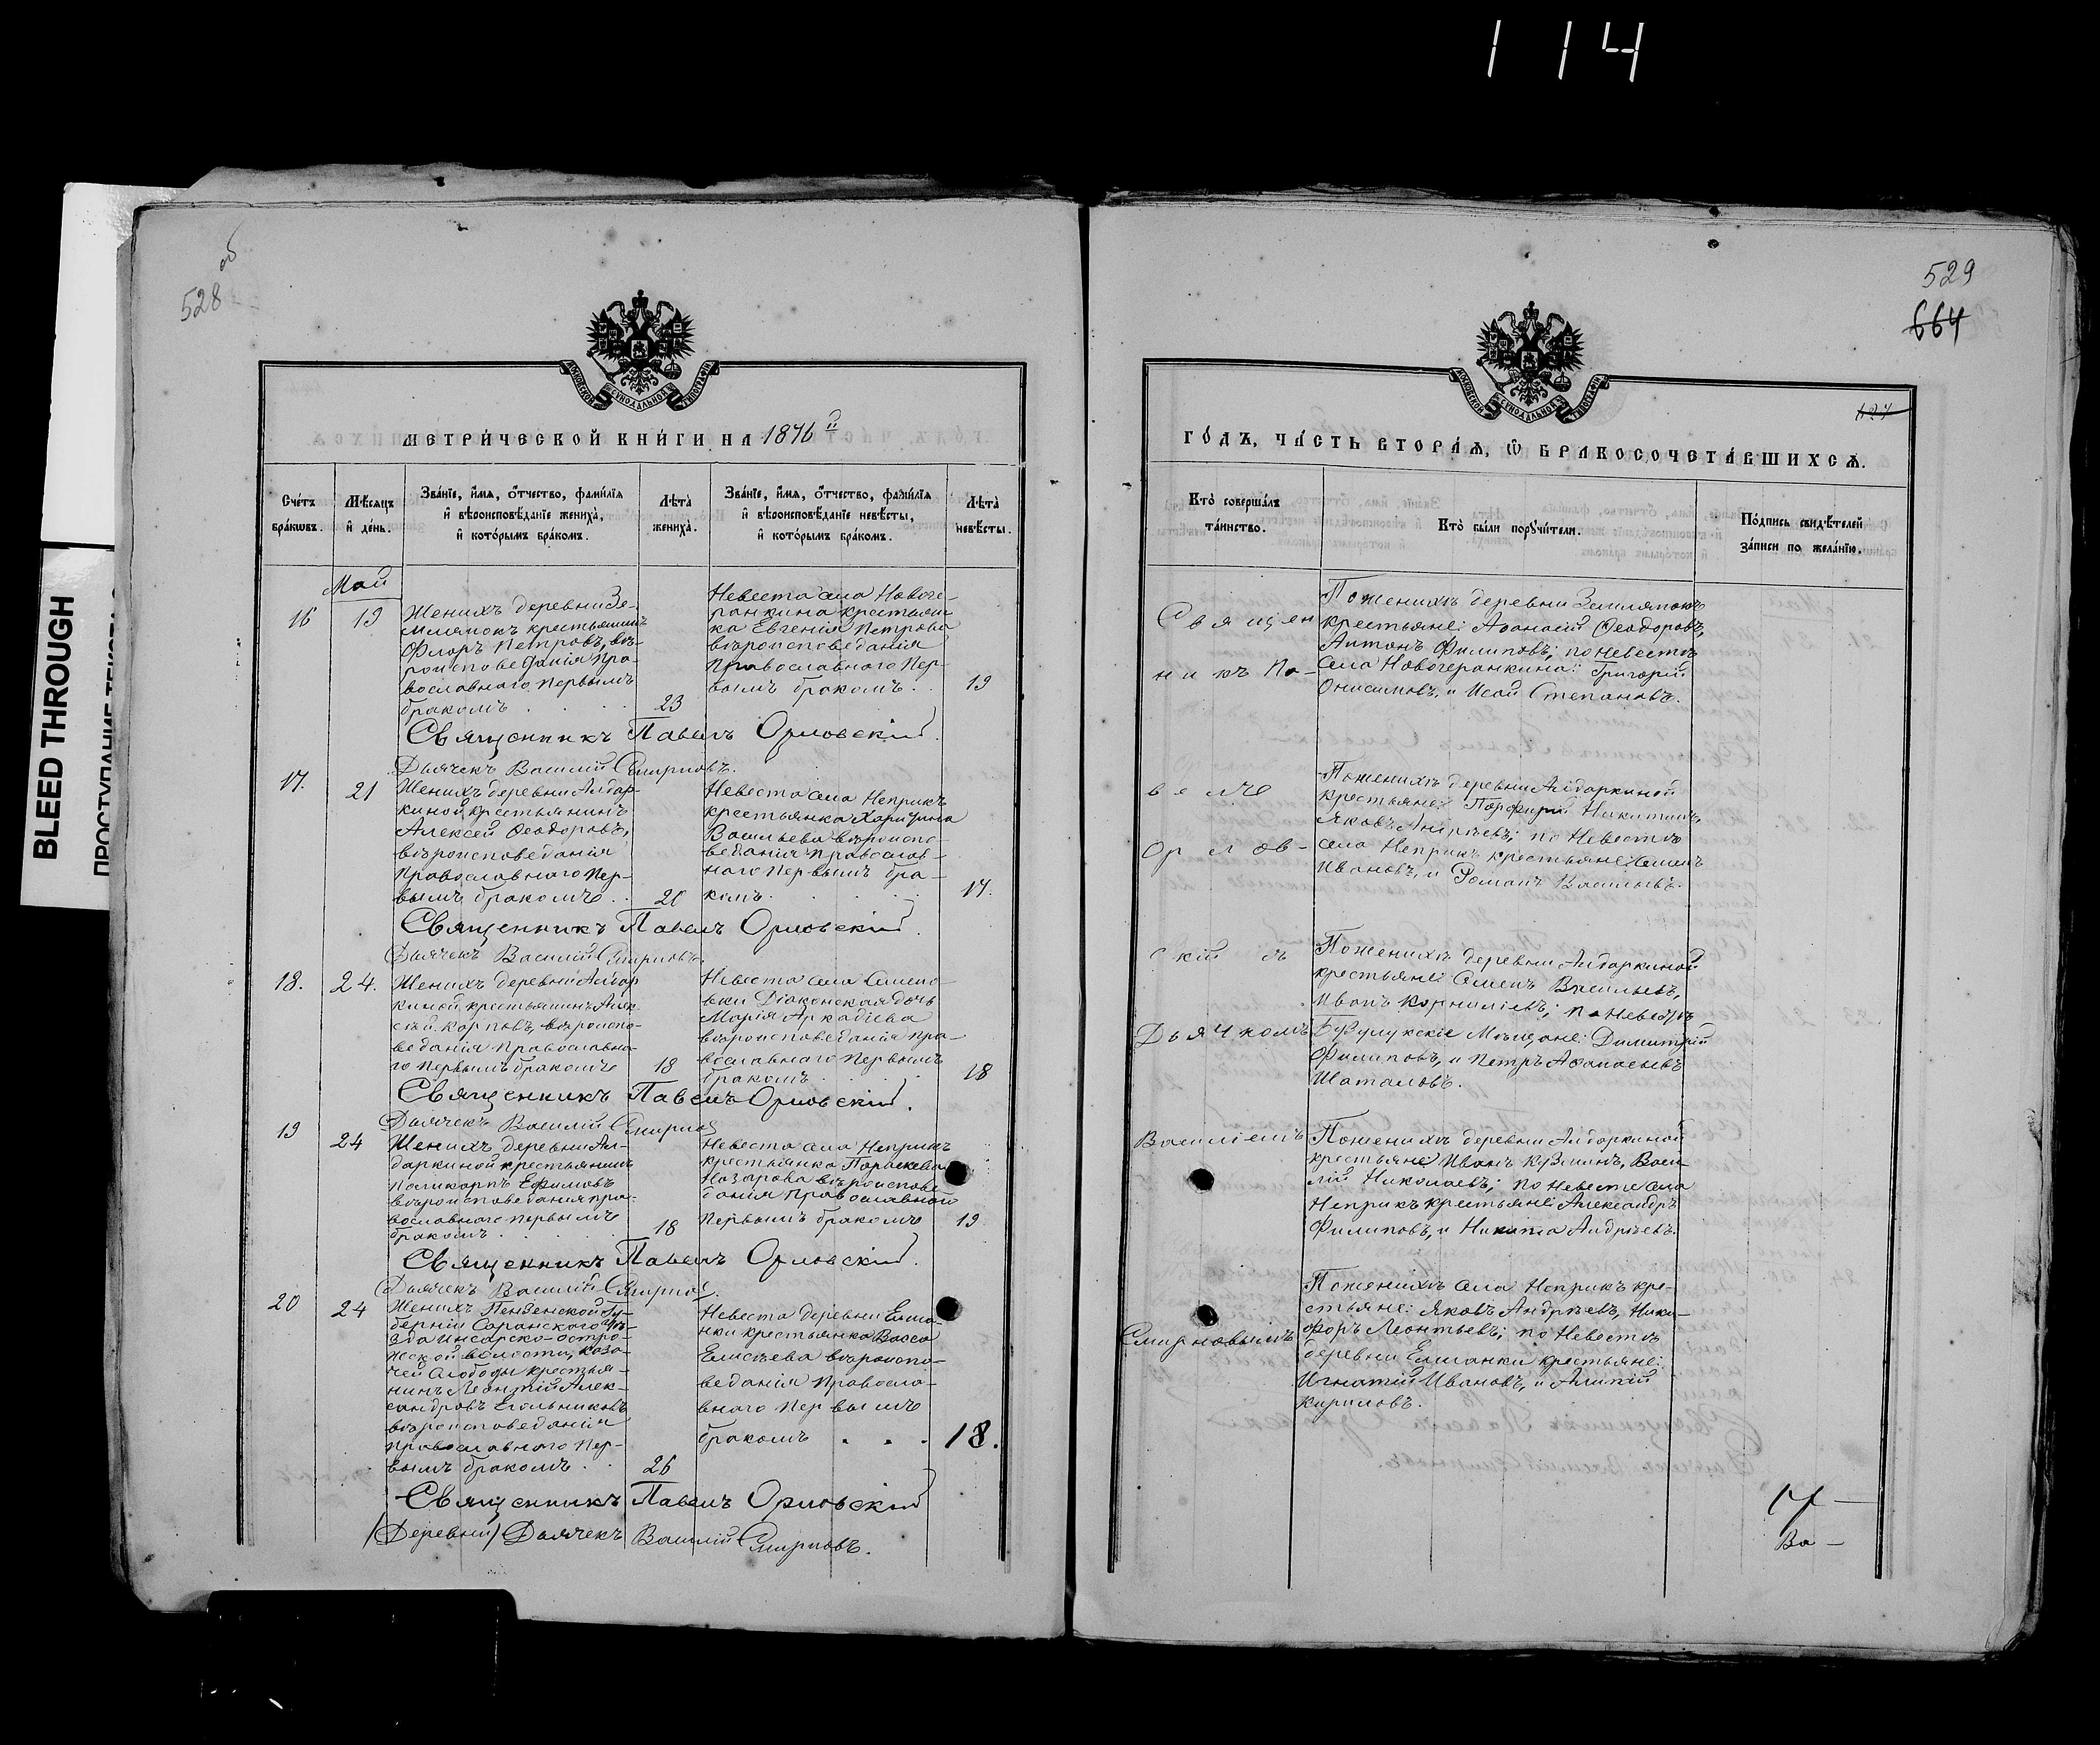 114
BLEED THROUGH
528 об
529
664
МОСКОВСКОЙ СѴНОДАЛЬНОЙ ТИПОГРАФІИ
МЕТРИ́ЧЕСКОЙ КНИ́ГИ НА 1876 й
Сче́тъ бра́кѡвъ.
Мѣ́сяцъ и҆ де́нь.
Зва́нїе, и҆́мя, ѻ҆́тчество, фами́лїя
и҆ вѣроисповѣ́данїе жениха̀,
и҆ кото́рымъ бра́комъ.
Лѣ́та̀ жениха̀.
Зва́нїе, и҆́мя, ѻ҆́тчество, фами́лїя
и҆ вѣроисповѣ́данїе невѣ́сты,
и҆ кото́рымъ бра́комъ.
Лѣ́та̀ невѣ́сты.
Май
16
19
Женихъ деревни Зе-
млянокъ крестьянинъ
Флоръ Петровъ, вѣ-
роисповеданія пра-
вославнаго первымъ
бракомъ
23
Невеста села Новоге-
ранкина крестьян-
ка Евгенія Петрова
вѣроисповеданія
православнаго пер-
вымъ бракомъ
19
Священникъ Павелъ Орловскій
Дьячекъ Василій Смирновъ.
17.
21
Женихъ деревни Алдар-
киной крестьянинъ
Алексей Ѳеодоровъ,
вѣроисповеданія
православнаго пер-
вымъ бракомъ
20
Невеста села Неприкъ
крестьянка Харитина
Васильева вѣроиспо-
веданія православ-
наго первымъ бра-
комъ.
17.
Священникъ Павелъ Орловскій
Дьячекъ Василій Смирновъ
18.
24.
Женихъ деревни Алдар
киной крестьянинъ Алек
сѣй Карповъ, вѣроиспо-
веданія православна-
го первымъ бракомъ
18
Невеста села Семено-
вки Діаконская дочь
Марія Аркадіева
вѣроисповеданія пра-
вославнаго первымъ
бракомъ
18
Священникъ Павелъ Орловскій.
Дьячекъ Василій Смирнов
19
24
Женихъ деревни Ал-
даркиной крестьянинъ
Поликарпъ Ефимовъ
вѣроисповеданія пра-
вославнаго первымъ
бракомъ
18
Невеста села Неприкъ
крестьянка Параскева
Назарова вѣроиспове
данія православнаго
первымъ бракомъ
19
Священникъ Павелъ Орловскій
Дьячекъ Василій Смирнов.
20
24
Женихъ Пензенской Гу-
берніи Саранского уѣ-
зда Инсарско-остро-
жской волости, каза-
чей слободы крестья-
нинъ Леонтій Алек-
сандровъ Егольниковъ
вѣроисповеданія
православнаго пер-
вымъ бракомъ
26
Невеста деревни Елша-
нки крестьянка Васса
Елисѣева вѣроиспо-
веданія правосла-
внаго первымъ
бракомъ
18.
Священникъ Павелъ Орловскій
(Деревни) Дьячекъ Василій Смирновъ.
МОСКОВСКОЙ СѴНОДАЛЬНОЙ ТИПОГРАФІИ
ГО́ДЪ, ЧА́СТЬ ВТОРА́Я, Ѽ БРАКОСОЧЕТА́ВШИХСЯ.
Кто̀ соверша́лъ та́инство.
Кто̀ бы́ли порꙋчи́тели.
По́дпись свидѣ́телей
за́писи по жела́нїю.
Священ
никъ Па-
велъ
Орлов-
скій съ
Дьячкомъ
Василіемъ
Смирновымъ
По женихѣ деревни Землянокъ
крестьяне: Аѳанасій Ѳеодоровъ,
Антонъ Филиповъ; по невестѣ
села Новогеранкина: Григорій
Онисимовъ, и Исай Степановъ.
По женихѣ деревни Алдаркиной
крестьяне: Порфирій Никитинъ,
Яковъ Андрѣевъ; по Невестѣ
села Неприкъ крестьяне Семенъ
Ивановъ, и Романъ Васильевъ.
По женихѣ деревни Алдаркиной
крестьяне Семенъ Васильевъ,
Иванъ Корниліевъ; по Невестѣ
Бузулукскіе Мѣщане: Димитрій
Филиповъ, и Петръ Аѳанасьевъ
Шаталовъ.
По женихѣ деревни Алдаркиной
крестьяне Иванъ Кузминъ, Васи-
лій Николаевъ; по Невесте села
Неприкъ крестьяне Александръ
Филиповъ, и Никита Андрѣевъ.
По женихѣ села Неприкъ кре-
стьяне: Яковъ Андрѣевъ, Ники-
форъ Леонтьевъ; по Невестѣ
деревни Елшанки крестьяне:
Игнатій Ивановъ, и Алипій
Кириловъ.
Ва -